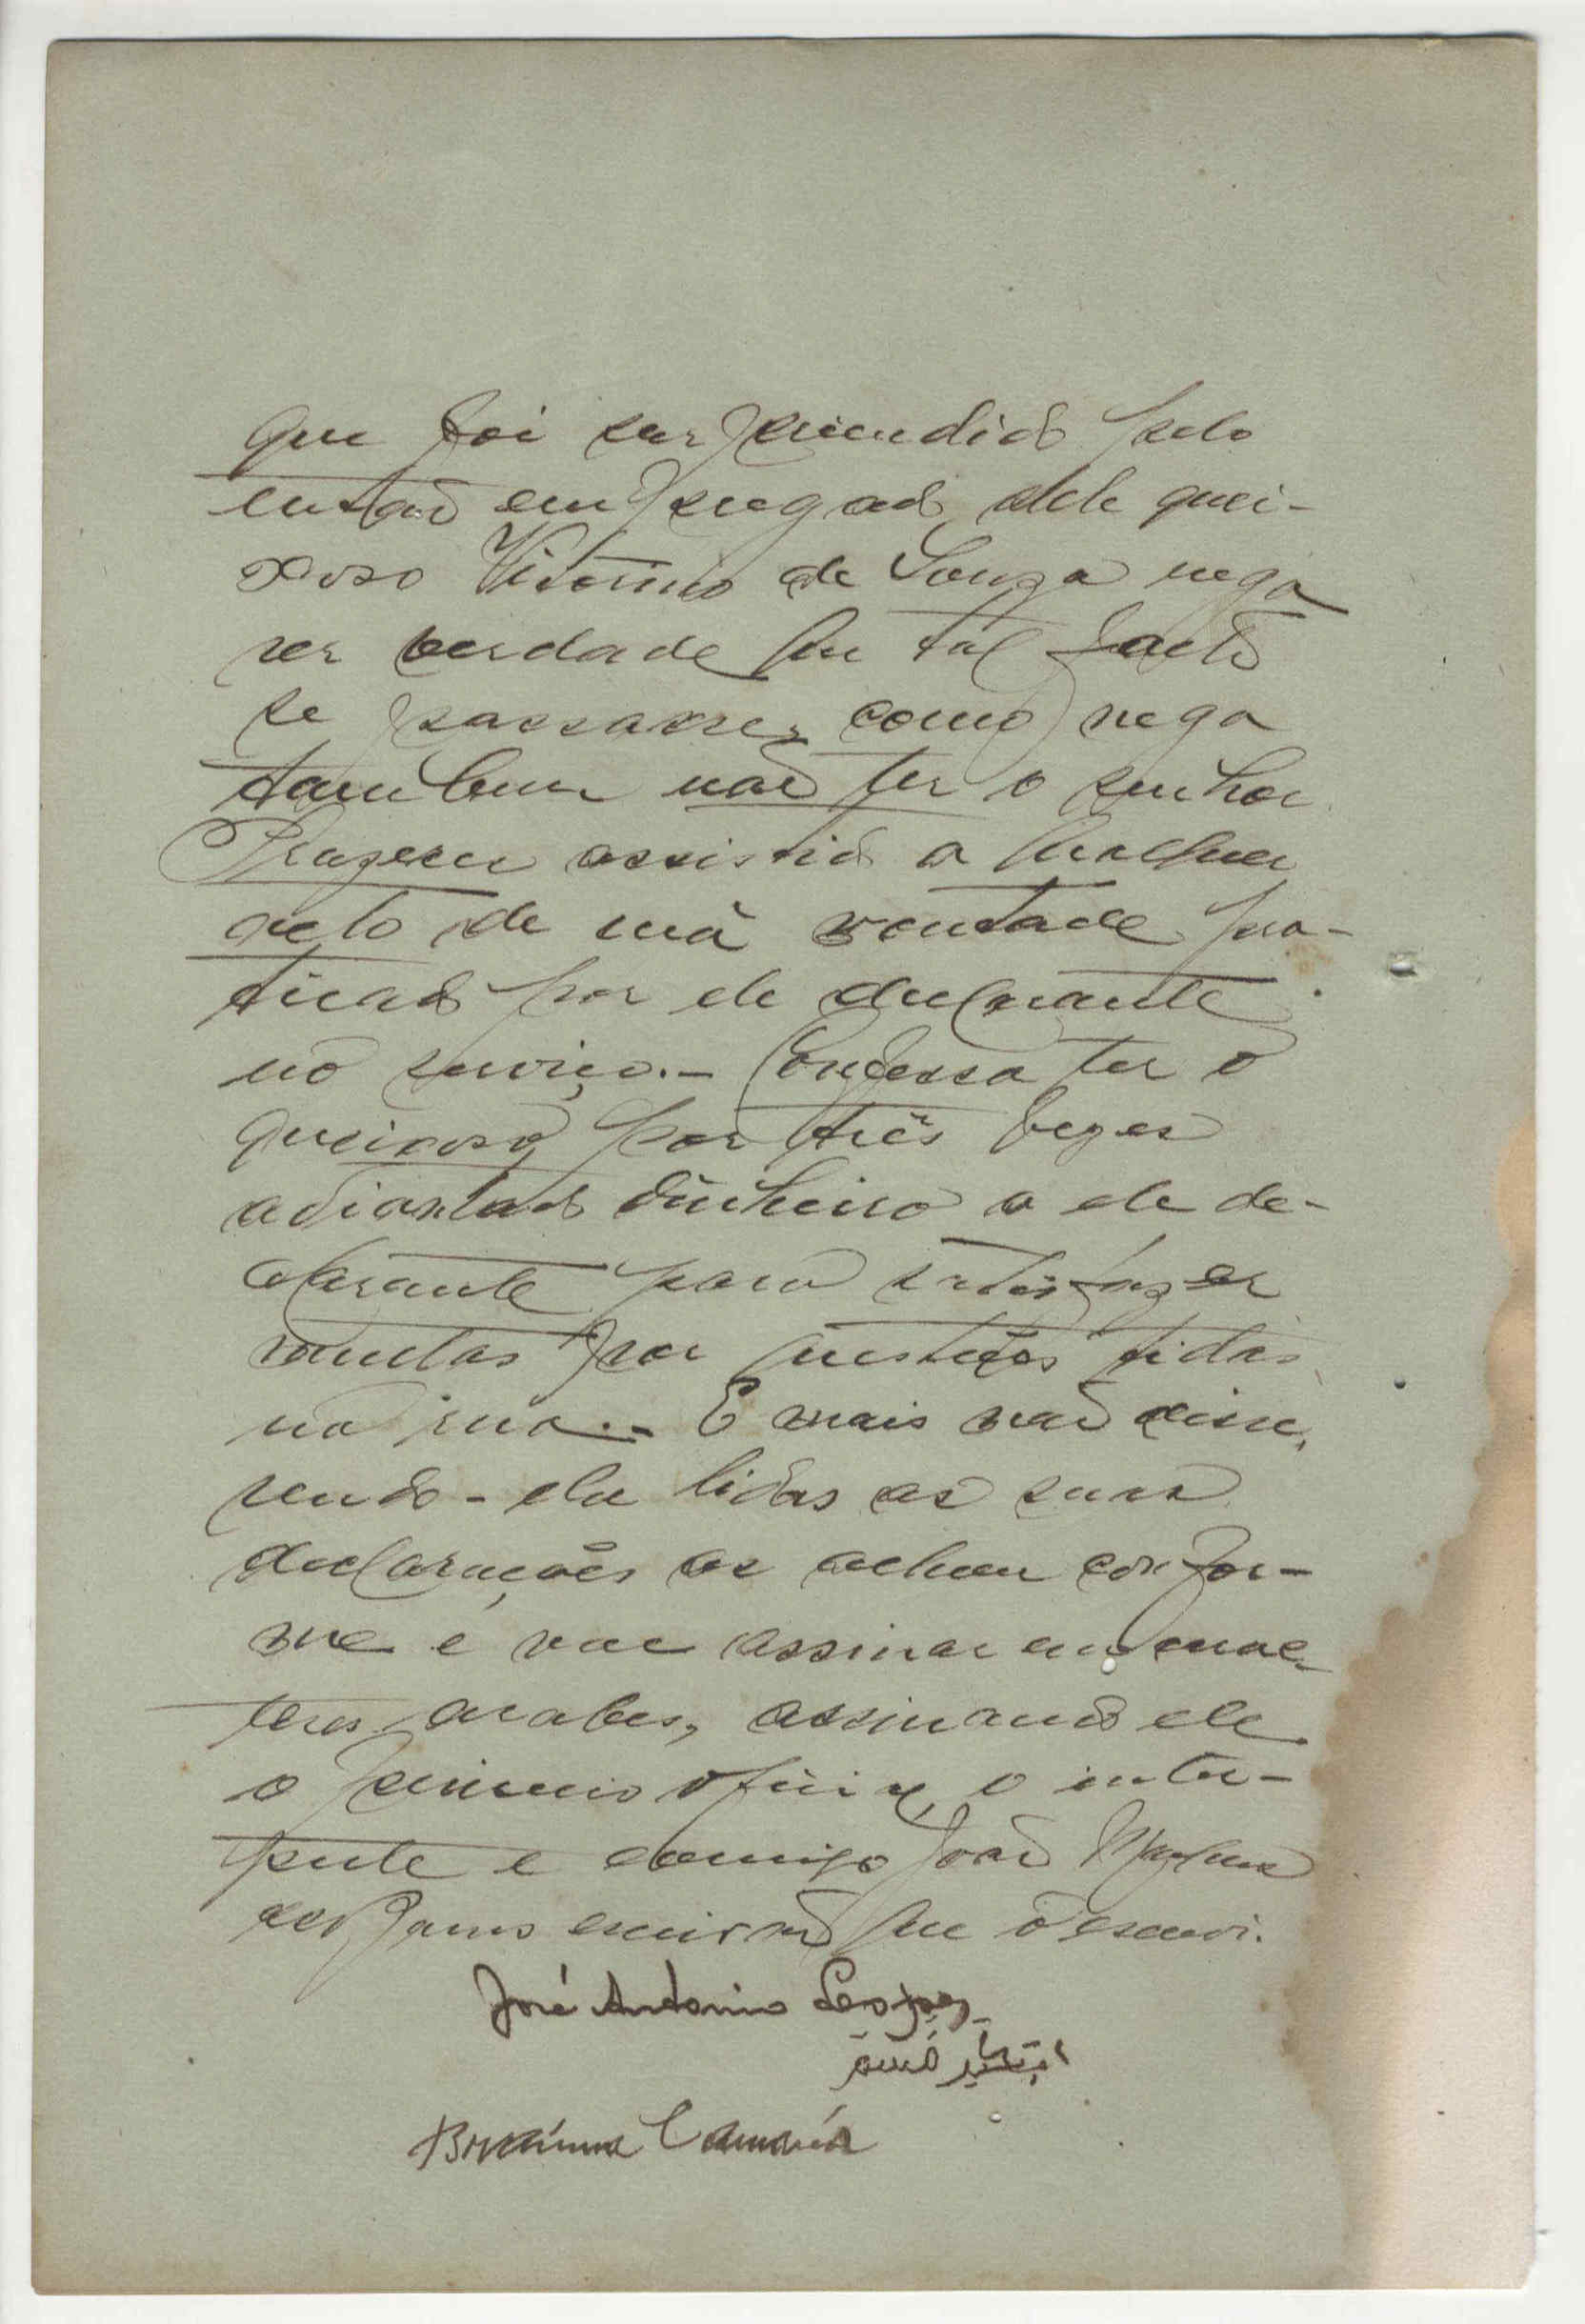 que foi surpreendido pelo
então empregado dele quei-
xoso Vitorino de Souza nega
ser verdade que tal facto
se passasse, como nega
tambem não ter o senhor
Prazeres assistido a qualquer
acto de má vontade pra-
ticado por ele declarante
no serviço.- Confessa ter o
queixoso, por três vezes
adiantado dinheiro a ele de-
clarante para satisfazer
multas por questões tidas
na rua.- E mais não disse,
sendo-lhe lidas as suas
declarações as achou confor-
me e vae assinar em carac-
teres arabes, assinando ele
o primeiro oficial, o inter-
prete e comigo João
escrivão que o escrevi.
José Antonio Lopes